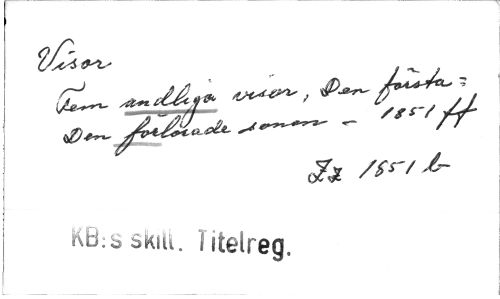 Visor
Fem andliga visor, Den första =
Den förlorade sonen - 1851 ff
Zz 1851 b
KB:s skill. Titelreg.